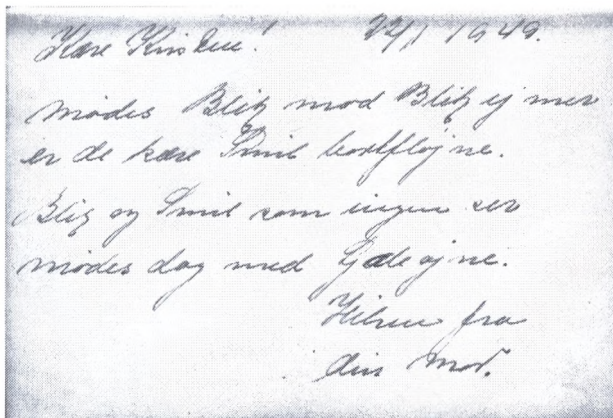 Kære Kirsten! 22/1 1949.
Mødes Blik mod Blik ej mer
er de kære Smil bortfløjne.
Blik og Smil som ingen ser
mødes dog med Sjæleøjne.
Hilsen fra
din Mor.